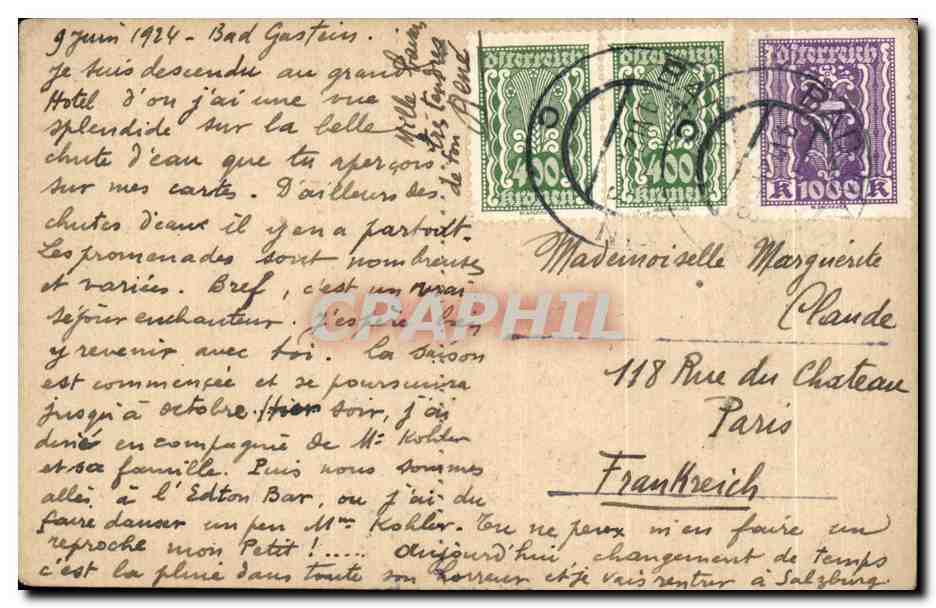 9 Juin 1924 - Bad Gastein.
Je suis descendu au grand
Hotel d'ou j'ai une vue
splendide sur la belle
chute d'eau que tu aperçois
sur mes cartes. D'ailleurs des
chutes d'eaux il y en a partout.
Les promenades sont nombreuses
et variées. Bref, c'est un vrai
séjour enchanteur. J'espère bien
y revenir avec toi. La saison
est commencée et se poursuivra
jusqu'à octobre. Hier soir, j'ai
diné en compagnie de Mr Kohler
et sa famille. Puis nous sommes
allés à l'Edton Bar, ou j'ai du
faire danser un peu Mme Kohler. Tu ne peux m'en faire un
reproche mon Petit !..... Aujourd'hui changement de temps
c'est la pluie dans toute son horreur et je vais rentrer à Salzburg.
Mille baisers
très tendres
de ton René
österreich
400
kronen
österreich
400
kronen
österreich
K 1000 K
BAD
Mademoiselle Marguerite
Claude
118 Rue du Chateau
Paris
Frankreich
CRAPHIL